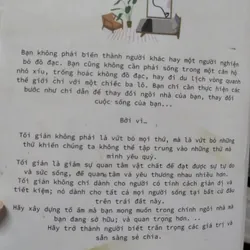 Bạn không phải biến thành người khác hay một người nghiện
bỏ đồ đạc. Bạn cũng không cần phải sống trong một căn hộ
nhỏ xíu, trống hoác không đồ đạc, hay đi du lịch vòng quanh
thế giới chỉ với một chiếc ba lô. Bạn chỉ cần thực hiện các
bước như chỉ dẫn để thay đổi ngôi nhà của bạn, thay đổi
cuộc sống của bạn...
Bởi vì…
Tối giản không phải là vứt bỏ mọi thứ, mà là vứt bỏ những
thứ khiến chúng ta không thể tập trung vào những thứ mà
mình yêu quý.
Tối giản là giảm sự quan tâm vật chất để đạt được sự tự do
và sức sống, để quan tâm và yêu thương nhau nhiều hơn.
Tối giản không chỉ dành cho người có tính cách giản dị và
tiết kiệm; nó dành cho tất cả mọi người sống tại bất cứ đâu
trên trái đất này.
Hãy xây dựng tổ ấm mà bạn mong muốn trong chính ngôi nhà mà
bạn đang sở hữu; và quan trọng hơn...
Hãy trở thành người biết trân trọng các giá trị và
sẵn sàng sẻ chia.